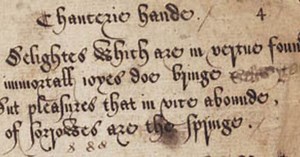 Chancerie hande. 4
Delightes Which are in vertue foun
immortall ioyes doe bringe
but pleasures that in vice abounde,
of sorrowes are the springe.